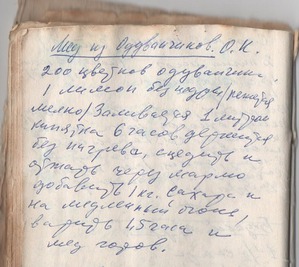 Мед из Одуванчиков. О.К.
200 цветков одуванчика
1 лимон без цедры (режется
мелко) Заливается 1 литром
кипятка 6 часов держится
без нагрева, сцедить и
отжать через марлю
добавить 1 кг. сахара и
на медленный огонь,
варить 1,5 часа и
мед готов.